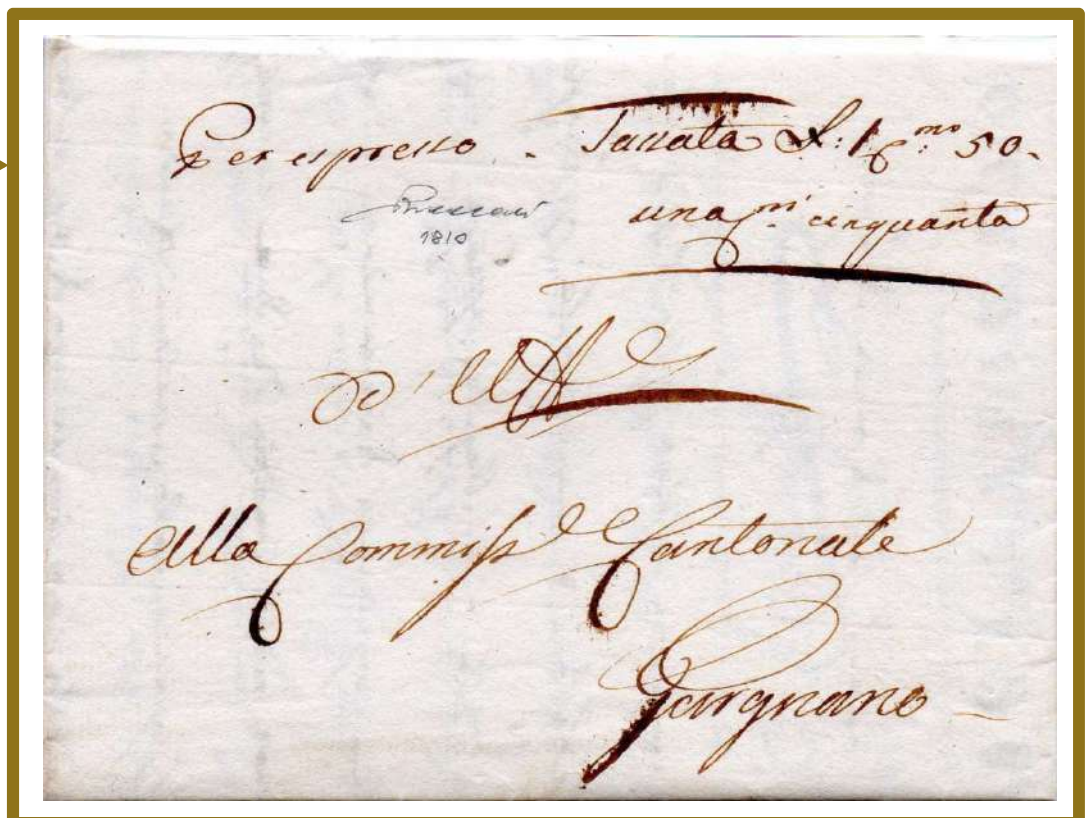 Per espresso - Tassata L: 1 C.mi 50.
una C.mi cinquanta
1810
d'Uff.
Alla Commiss. Cantonale
Gargnano